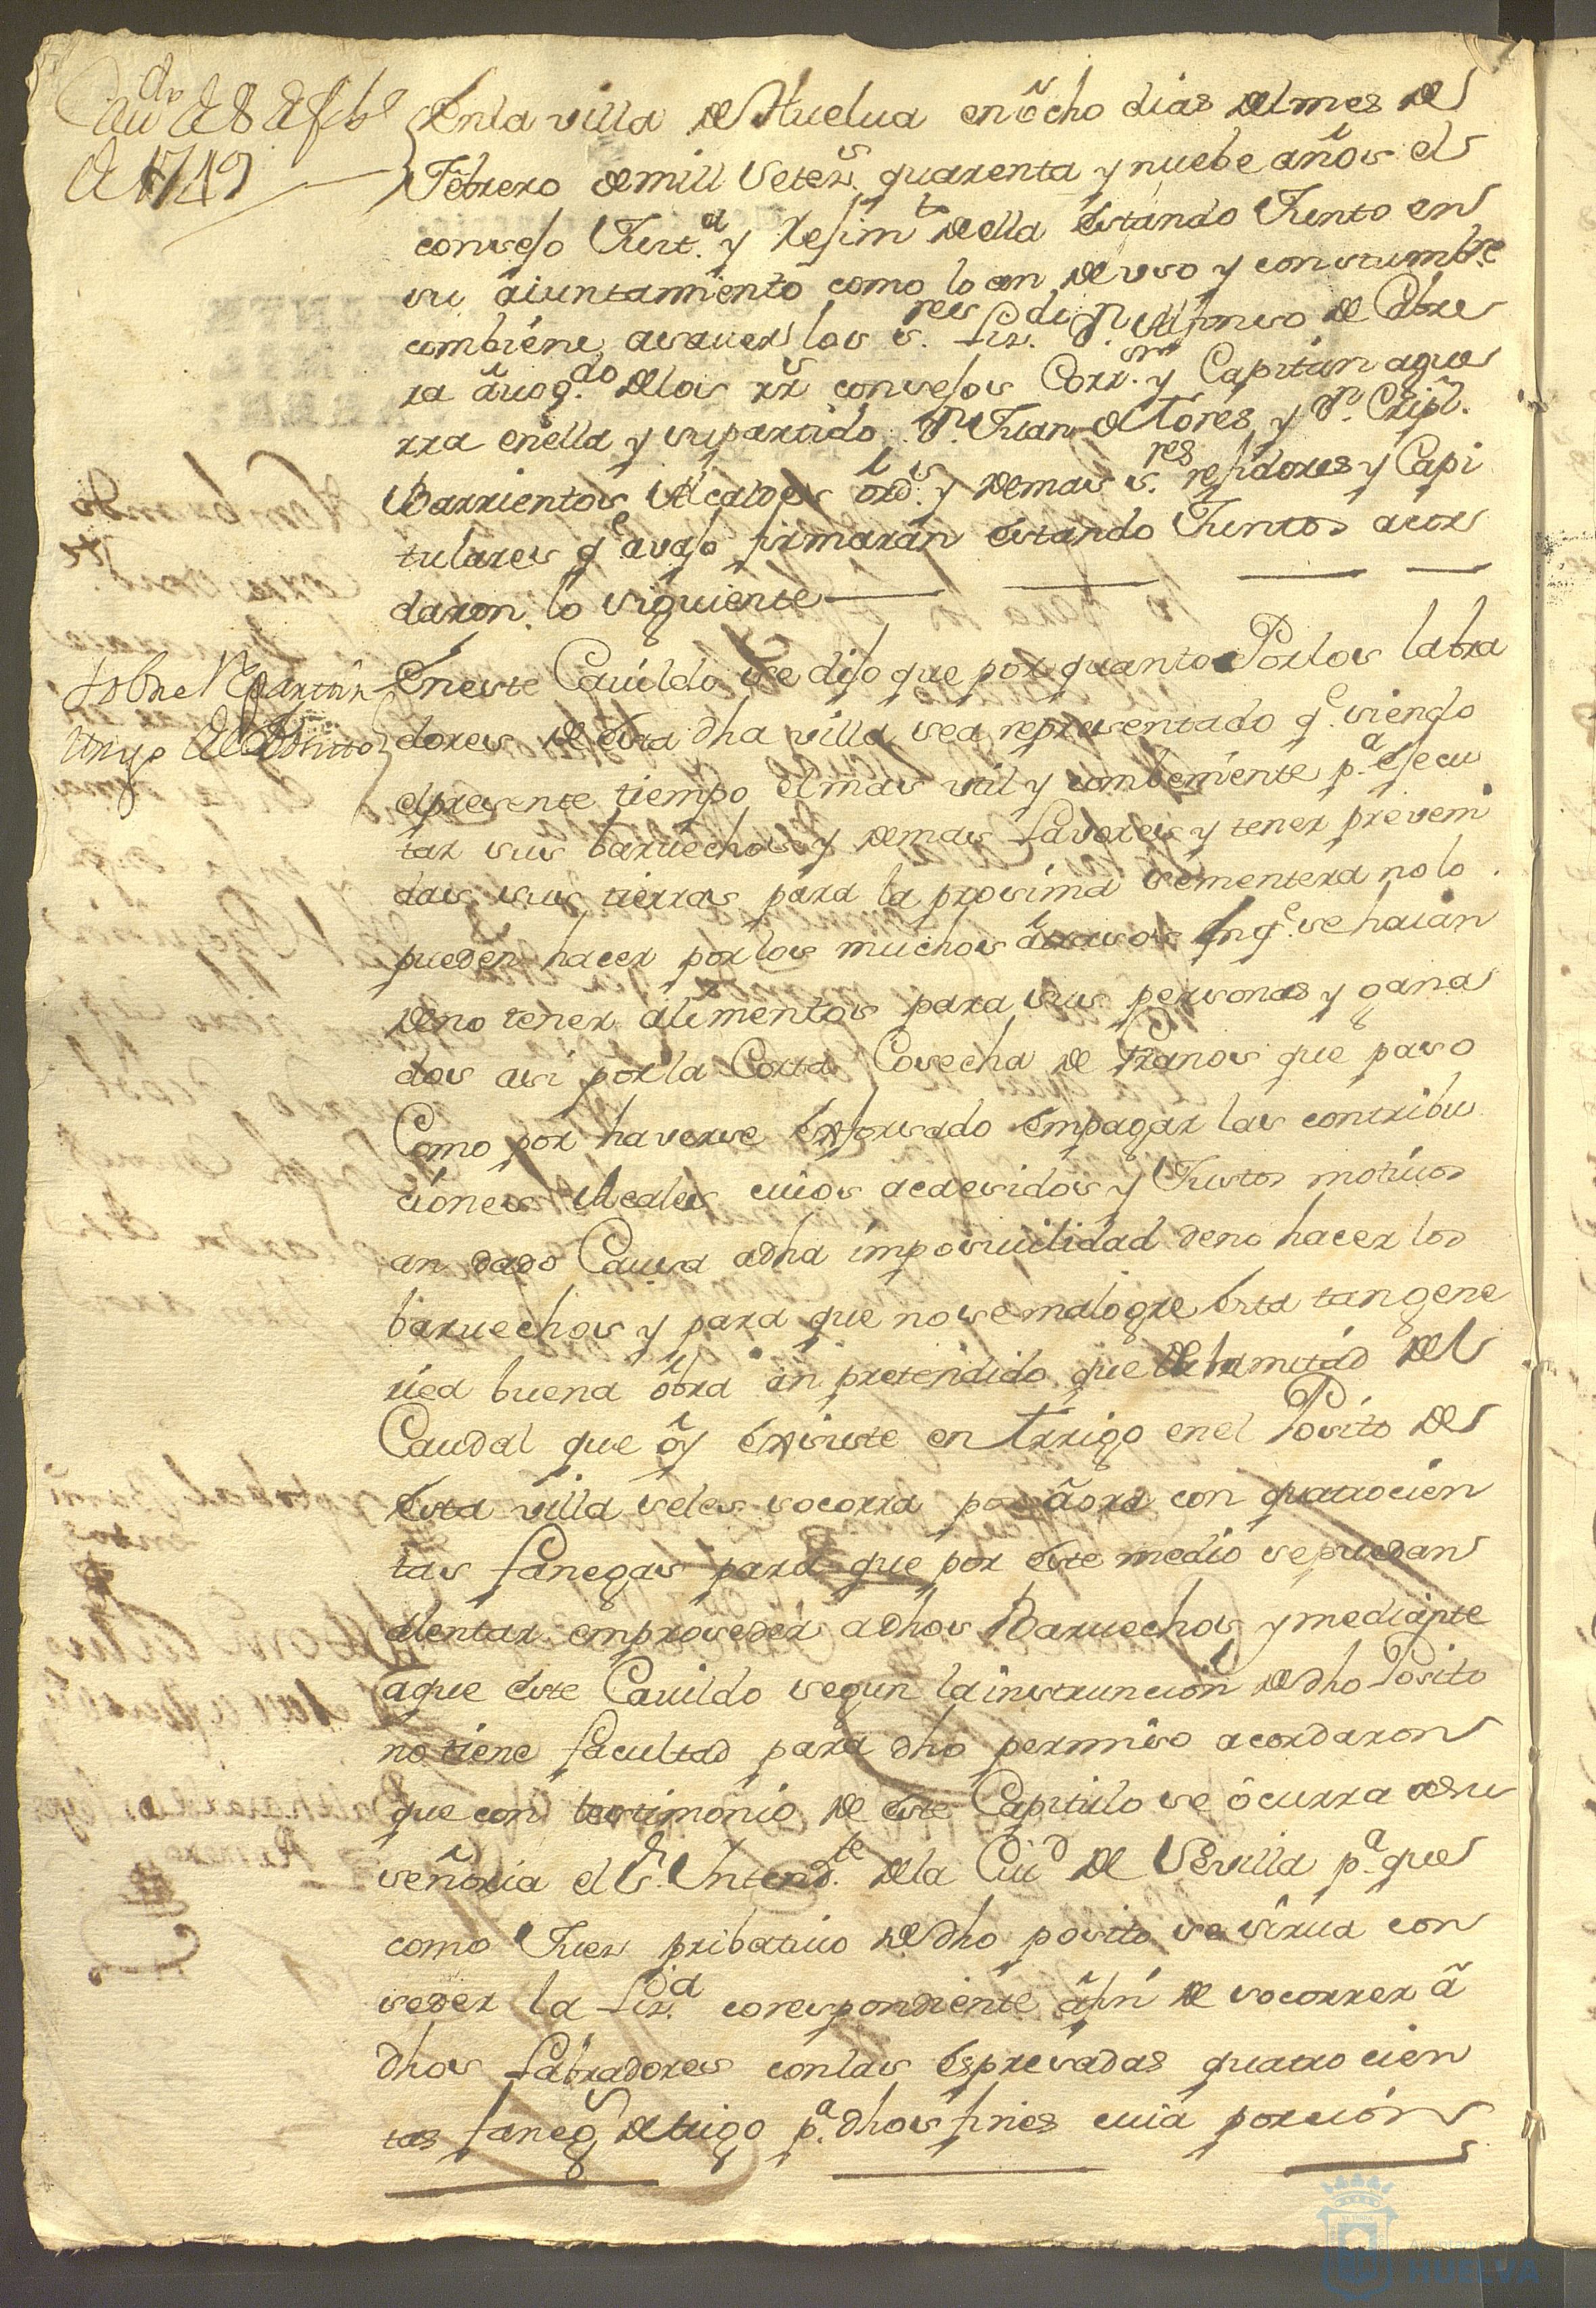 Cavdo de 8 de febo
de 1749
En la villa de Huelua en ocho dias del mes de
Febrero de mill setezs quarenta y nuebe años el
consejo Justa y Rejimto de ella estando Junto en
su aiuntamiento como lo an de uso y constumbre
combiene asauer los sres Lizdo Dn Alfonso de Cabre
ra auogdo de los rrs consejos Corrr y Capitan a gue
rra en ella y su partido, Dn Juan de Tores, y Dn Cripl
Barrientos Alcaldes ords y demas sres rejidores y Capi
tulares qe auajo firmaran estando Juntos acor
daron lo siguiente
Sobre Repartir
trigo del Posito
En este Cauildo se dijo que por quanto Por los labra
dores de esta dha villa sea representado qe siendo
el presente tiempo el mas util y combeniente pa ejecu
tar sus baruechos y demas lavores y tener preveni
das sus tierras para la prosima sementera no lo
pueden hacer por los muchos atrasos en qe se haian
de no tener alimentos para sus personas y gana
dos asi por la Corta Cosecha de Granos que paso
Como por haverse esforsado em pagar las contribu
ciones Reales cuios acaesidos y Justos motiuos
an dado Causa a dha imposiuilidad de no hacer los
baruechos y para que no se malogre esta tan gene
rica buena obra an pretendido que de la mitad del
Caudal que oy existe en trigo en el Posito de
esta villa se les socorra por aora con quatrocien
tas fanegas para que por este medio se puedan
alentar em proseder a dhos Baruechos y mediante
a que este Cauildo segun la instruncion de dho Posito
no tiene facultad para dho permiso acordaron
que con testimonio de este Capitulo se ocurra a su
señoria el Sr Intendte de la Ciud de Sevilla pa que
como Juez pribatiuo de dho posito se sirua con
seder la Liza corespondiente a fin de socorrer a
dhos Labradores con las espresadas quatrocien
tas fanegs de trigo pa dhos fines cuia porcion
HUELVA